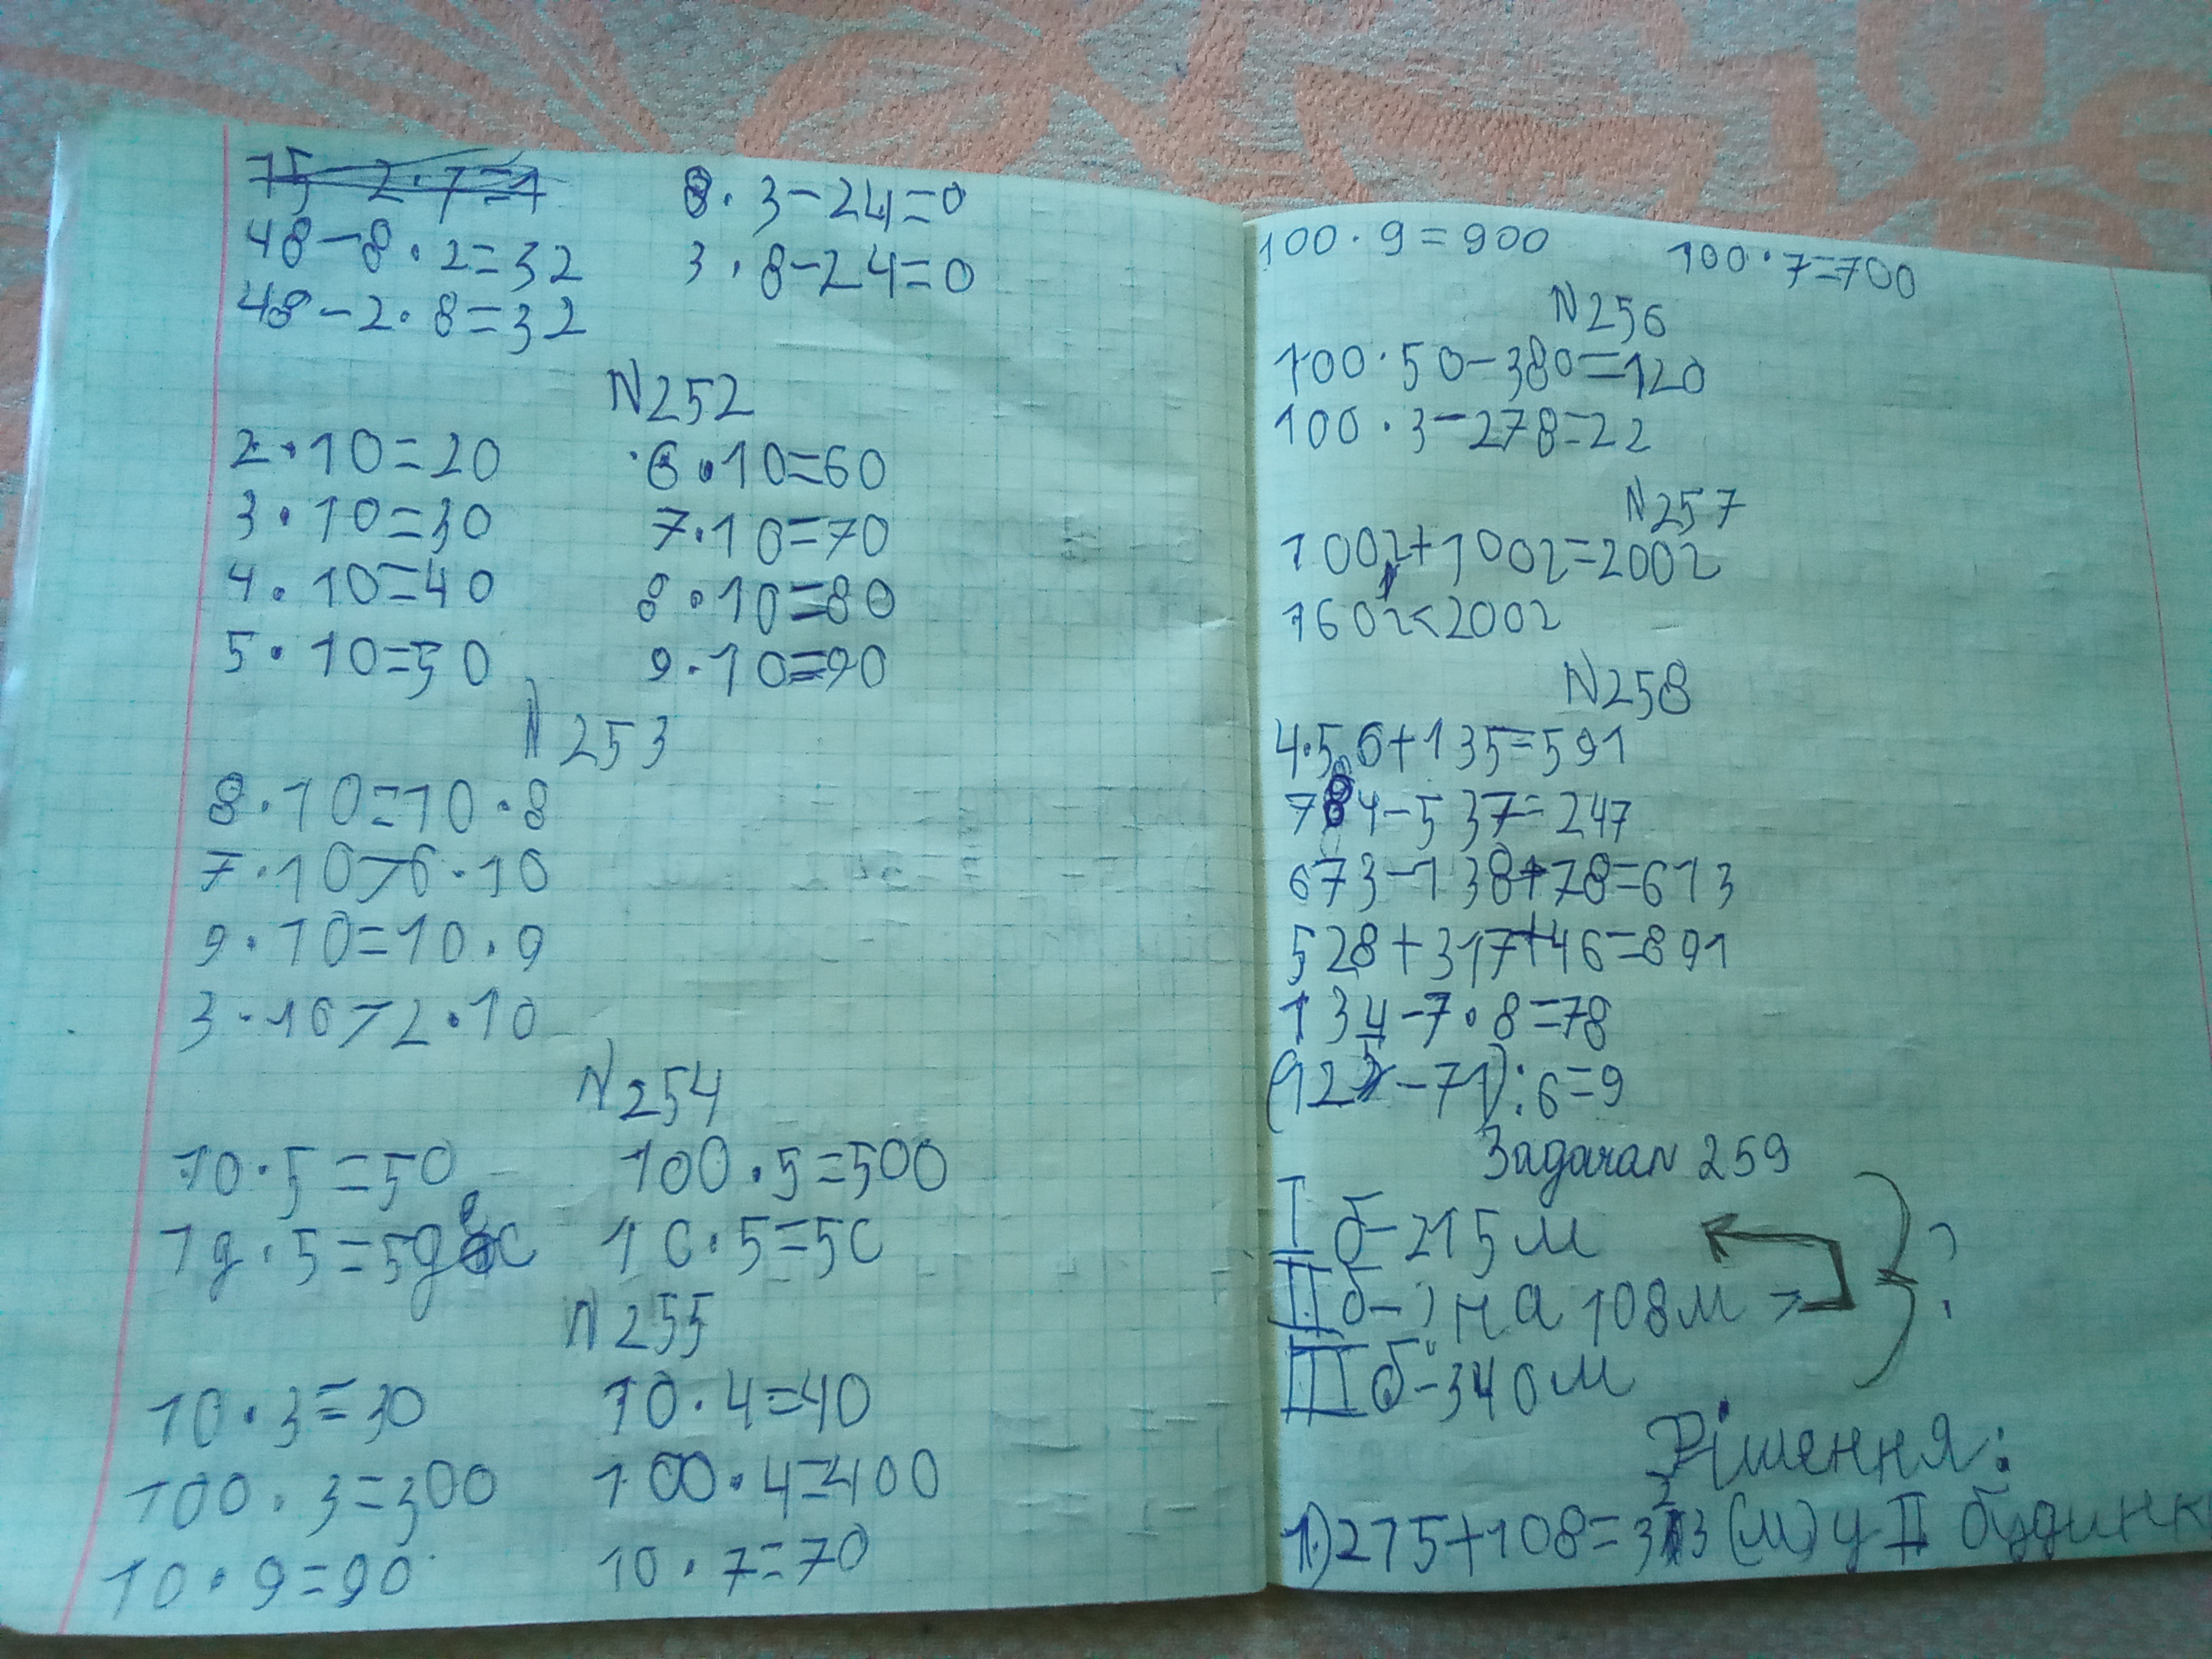 48-8·2=32
48-2·8=32
8·3-24=0
3·8-24=0
N252
2·10=20
3·10=30
4·10=40
5·10=50
6·10=60
7·10=70
8·10=80
9·10=90
N253
8·10=10·8
7·10>6·10
9·10=10·9
3·10>2·10
N254
10·5=50
1g·5=5g
100·5=500
1c·5=5c
N255
10·3=30
100·3=300
10·9=90
10·4=40
100·4=400
10·7=70
100·9=900
100·7=700
N256
100·50-380=120
100·3-278=22
N257
100г+100г=200г
160г<200г
N258
4·5,6+135=591
784-537=247
673-138+78=613
528+317+46=891
134-7·8=78
(125-71):6=9
Задача N 259
I б-215м
II б-? на 108м >
III б-340м
?
Рішення:
1)215+108=323 (м) у II будинк